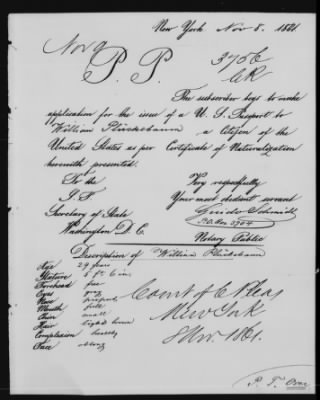 New York Nov 8. 1861.
Nov 9
P. P.
3756
CR
The subscriber begs to make
application for the issue of a U. S. Passport to
William Plücksbaum a Citizen of the
United States as per Certificate of Naturalization
herewith presented.
To the
Secretary of State
Washington D. C.
Very respectfully
Your most obedient servant
Guido
Notary Public
Description of William Plücksbaum
Age 29 years
Stature 5 ft 6 in.
Forehead free
Eyes gray
Nose
Mouth full
Chin small
Hair light brown
Complexion healthy
Face oblong
Court of C Pleas
New York
8 Nov. 1861.
P. T. Over